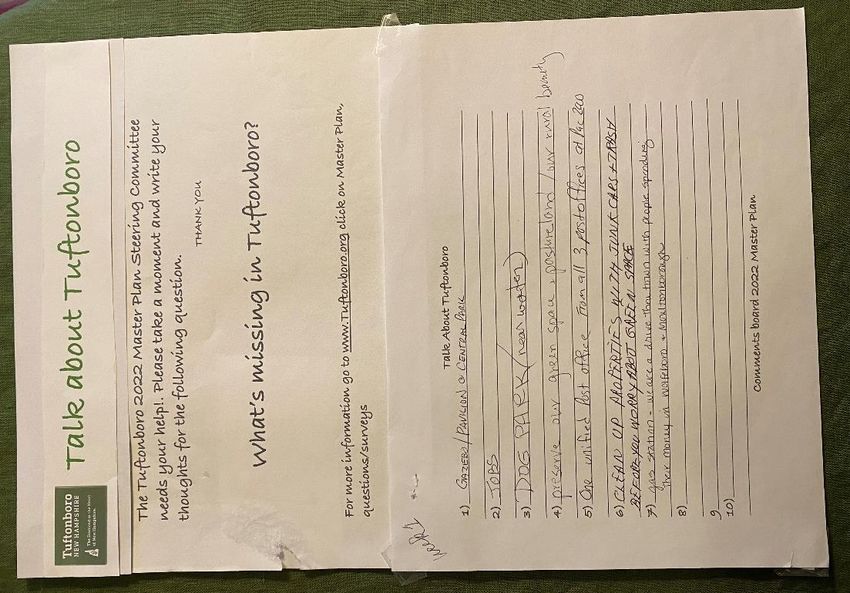 Tuftonboro
NEW HAMPSHIRE
Talk about Tuftonboro
The Tuftonboro 2022 Master Plan Steering Committee
needs your help!. Please take a moment and write your
thoughts for the following question.
THANK YOU
What's missing in Tuftonboro?
For more information go to www.Tuftonboro.org click on Master Plan,
questions/surveys
Talk About Tuftonboro
1) GAZEBO/PAVILION @ CENTRAL PARK
2) JOBS
3) DOG PARK (near water)
4) preserve our green space, pastureland/our rural beauty
5) One unified Post office from all 3 post offices at
6) CLEAN UP PROPERTIES WITH JUNK CARS + TRASH
BEFORE YOU WORRY ABOUT GREEN SPACE
7) gas station - we are a drive thru town with people spending
their money in Wolfeboro + Moultonborough
8)
9
10)
Comments board 2022 Master Plan